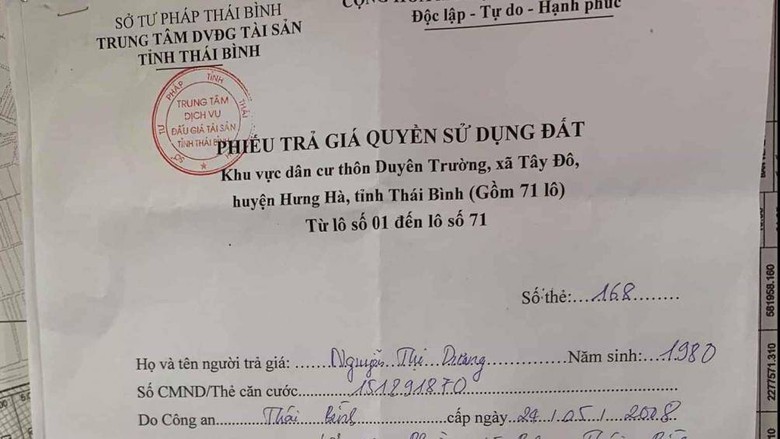 SỞ TƯ PHÁP THÁI BÌNH
TRUNG TÂM DVĐG TÀI SẢN
TỈNH THÁI BÌNH
CỘNG HÒA
Độc lập - Tự do - Hạnh phúc
SỞ TƯ PHÁP TỈNH THÁI
TRUNG TÂM
DỊCH VỤ
ĐẤU GIÁ TÀI SẢN
TỈNH THÁI BÌNH
PHIẾU TRẢ GIÁ QUYỀN SỬ DỤNG ĐẤT
Khu vực dân cư thôn Duyên Trường, xã Tây Đô,
huyện Hưng Hà, tỉnh Thái Bình (Gồm 71 lô)
Từ lô số 01 đến lô số 71
Số thẻ:...168
Họ và tên người trả giá: Nguyễn Thị Dương Năm sinh: 1980
Số CMND/Thẻ căn cước 151891870
Do Công an Thái Bình cấp ngày 24/05/2008
581958.160
2277571.310